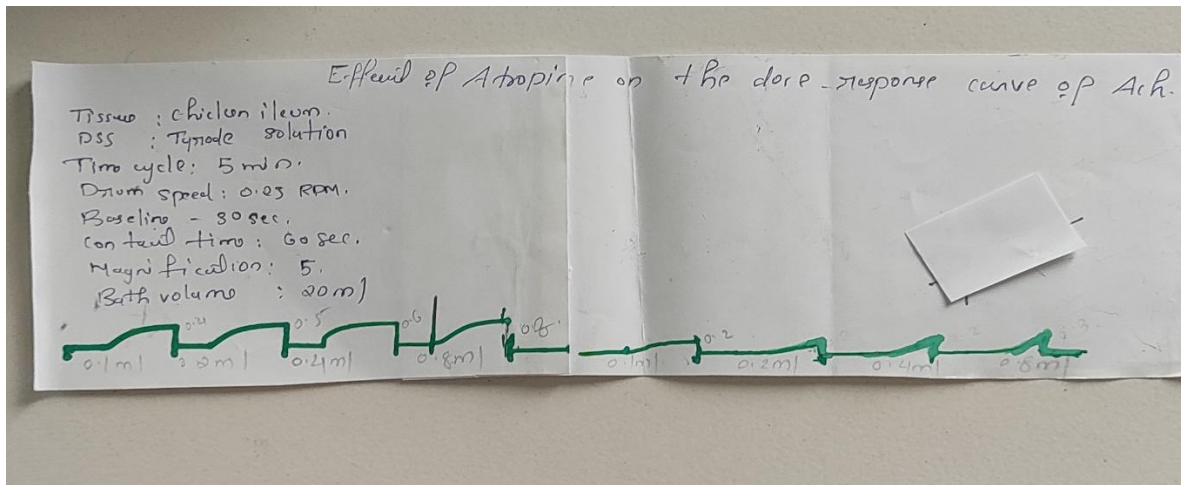 Effect of Atropine on the dose-response curve of Ach.
Tissue : chicken ileum.
PSS : Tyrode solution
Time cycle: 5 min.
Drum speed: 0.25 RPM.
Baseline - 30 sec.
Contact time: 60 sec.
Magnification: 5.
Bath volume : 20ml
0.4 0.5 0.6 0.8 0.2
0.1ml 0.2ml 0.4ml 0.8ml 0.1ml 0.2ml 0.4ml 0.8ml